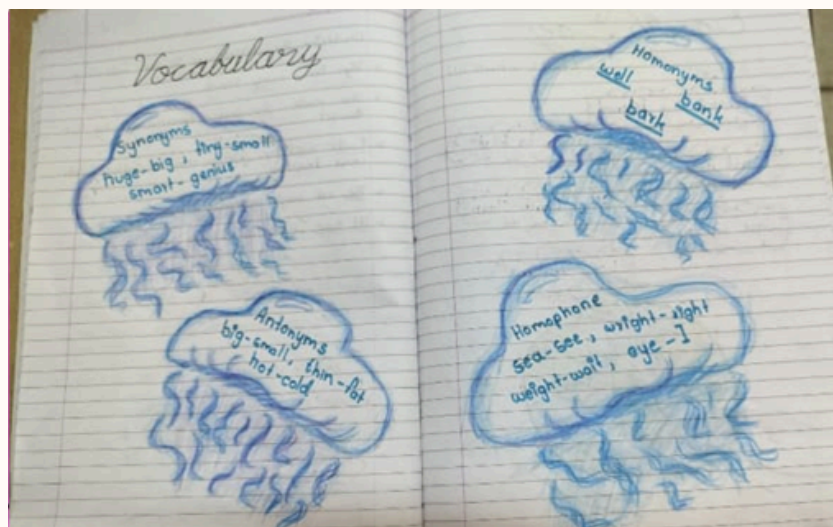 Vocabulary
Synonyms
huge-big, tiny-small
smart-genius
Antonyms
big-small, thin-fat
hot-cold
Homonyms
well
bank
bark
Homophone
sea-see, wright-right
weight-wait, eye-I